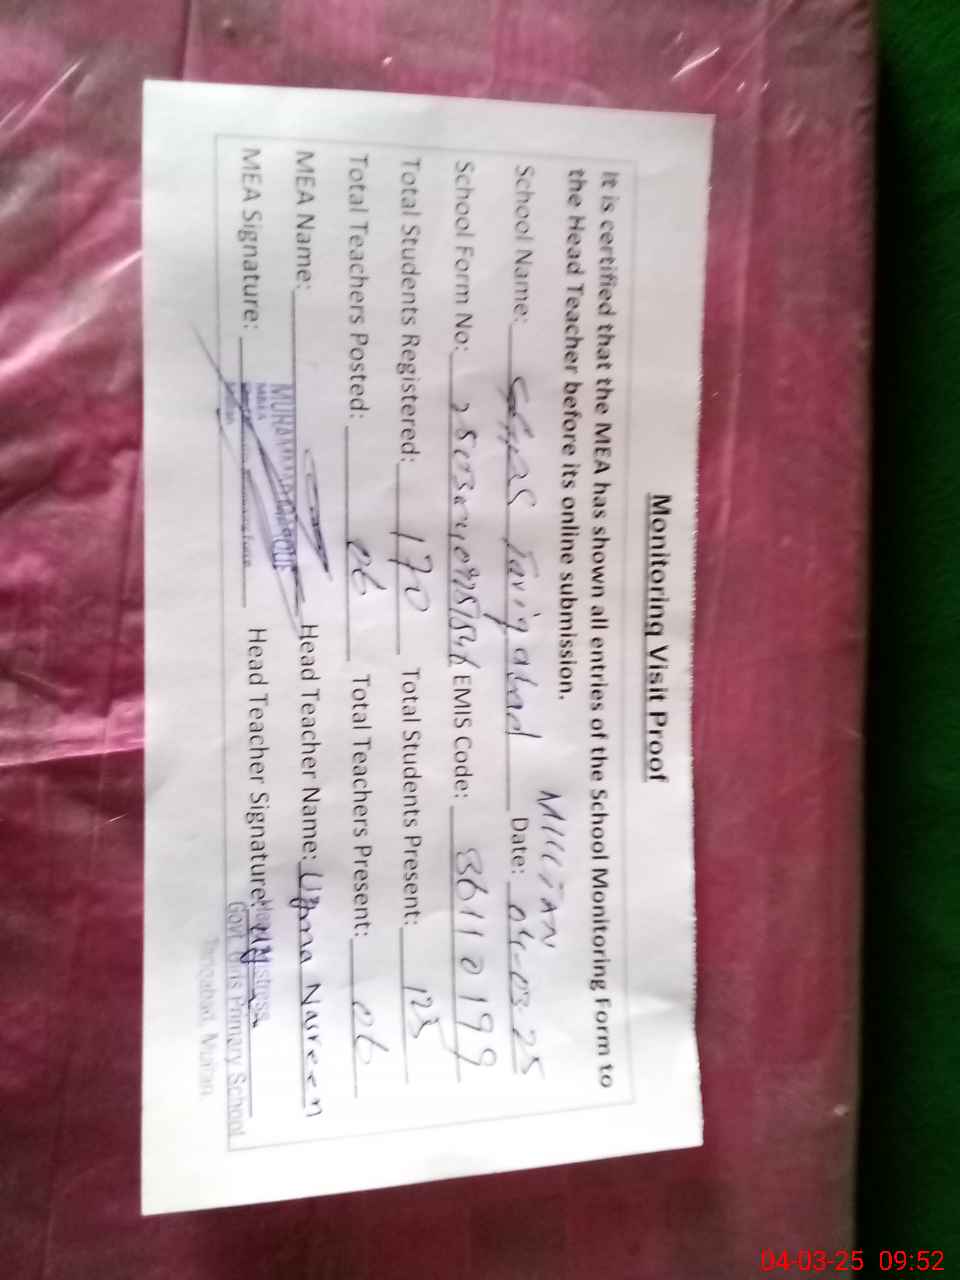 Monitoring Visit Proof
It is certified that the MEA has shown all entries of the School Monitoring Form to
the Head Teacher before its online submission.
MULTAN
School Name: GGPS Tariqabad Date: 04-03-25
School Form No: EMIS Code: 36110199
Total Students Registered: 170 Total Students Present: 123
Total Teachers Posted: 06 Total Teachers Present: 06
MEA Name: Head Teacher Name: Uzma Nasreen
MUHAMMAD
MEA Signature: Head Teacher Signature:
Headmistress
Govt. Girls Primary School
Tariqabad, Multan.
04-03-25 09:52